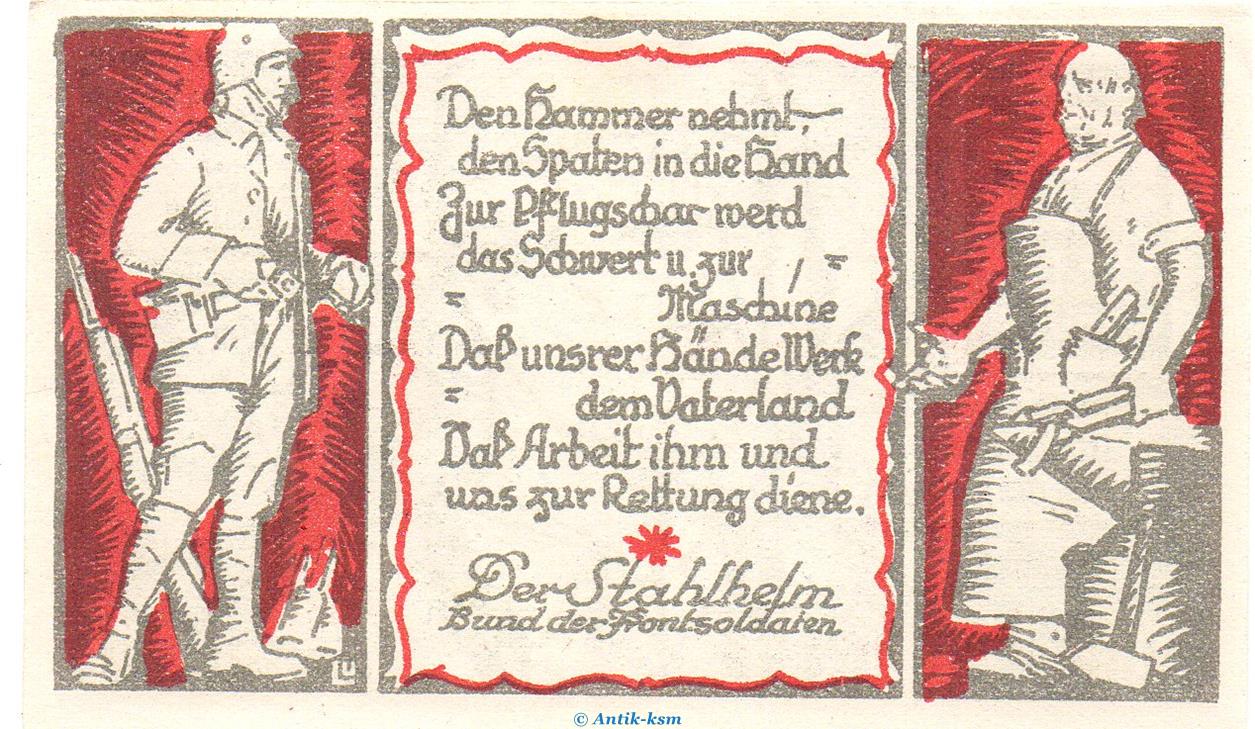 Den Hammer nehmt,
den Spaten in die Hand
Zur Pflugschar werd
das Schwert u. zur =
= Maschine
Daß unsrer Hände Werk
= dem Vaterland
Daß Arbeit ihm und
uns zur Rettung diene.
Der Stahlhelm
Bund der Frontsoldaten
© Antik-ksm